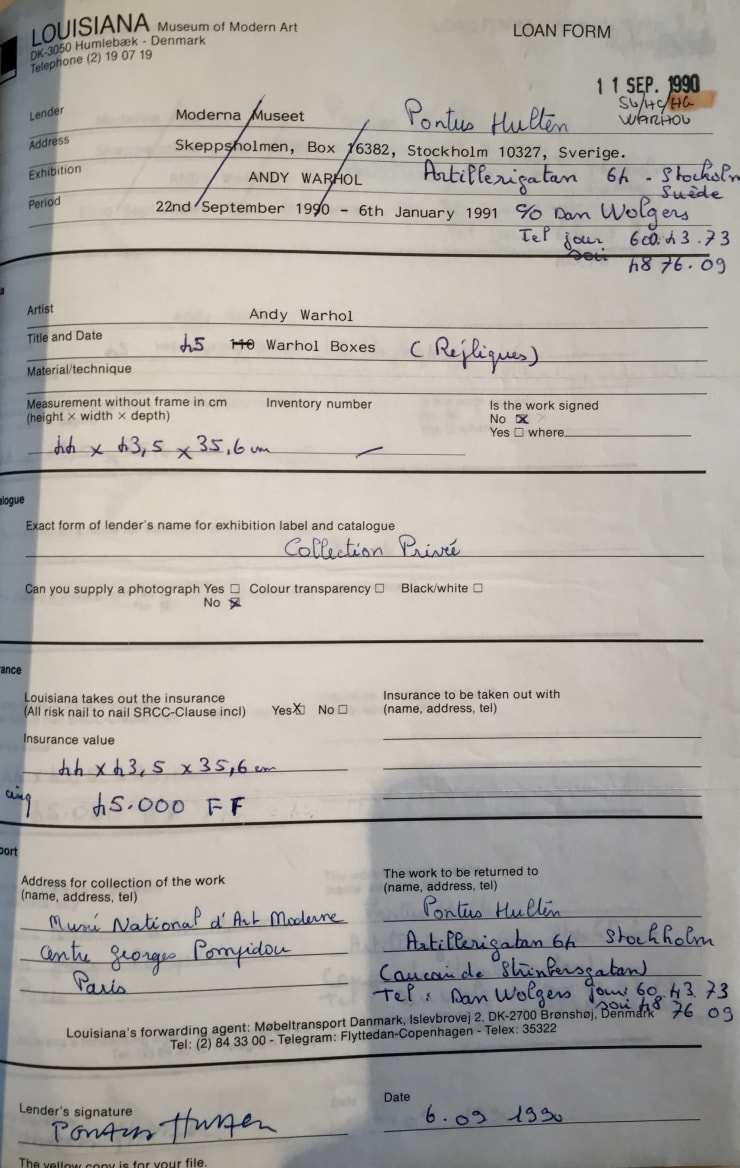 LOUISIANA Museum of Modern Art
DK-3050 Humlebæk - Denmark
Telephone (2) 19 07 19
LOAN FORM
11 SEP. 1990
SW/HC/HG
WARHOL
Lender Moderna Museet Pontus Hulten
Address Skeppsholmen, Box 16382, Stockholm 10327, Sverige.
Exhibition ANDY WARHOL Artillerigatan 64 - Stockholm
Suède
Period 22nd September 1990 - 6th January 1991 c/o Dan Wolgers
Tel jour 600.43.73
soir 48 76.09
Artist Andy Warhol
Title and Date 45 110 Warhol Boxes (Répliques)
Material/technique
Measurement without frame in cm Inventory number Is the work signed
(height x width x depth) No ☒
Yes ☐ where
44 x 43,5 x 35,6 cm
alogue
Exact form of lender's name for exhibition label and catalogue
Collection Privée
Can you supply a photograph Yes ☐ Colour transparency ☐ Black/white ☐
No ☒
ance
Louisiana takes out the insurance Insurance to be taken out with
(All risk nail to nail SRCC-Clause incl) Yes ☒ No ☐ (name, address, tel)
Insurance value
44 x 43,5 x 35,6 cm
cinq 45.000 FF
port
Address for collection of the work The work to be returned to
(name, address, tel) (name, address, tel)
Musé National d'Art Moderne Pontus Hulten
Centre Georges Pompidou Artillerigatan 64 Stockholm
Paris
Tel: Dan Wolgers jour: 60.43.73
soir 48 76 09
Louisiana's forwarding agent: Møbeltransport Danmark, Islevbrovej 2, DK-2700 Brønshøj, Denmark
Tel: (2) 84 33 00 - Telegram: Flyttedan-Copenhagen - Telex: 35322
Lender's signature Date
Pontus Hulten 6.09 1990
The yellow copy is for your file.